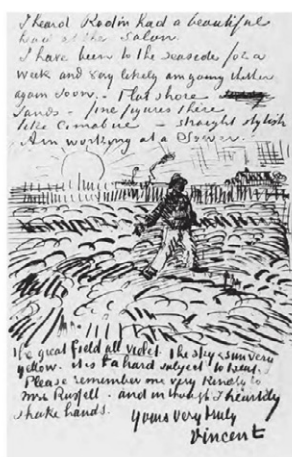 I heard Rodin had a beautiful
head at the salon.
I have been to the seaside for a
week and very likely am going thither
again soon. - Flat shore
sands - fine figures there
like Cimabue - straight stylish
Am working at a Sower.
the great field all violet the sky & sun very
yellow. it is a hard subject to treat.
Please remember me very kindly to
Mrs Russell - and in thought I heartily
shake hands.
Yours very truly
Vincent